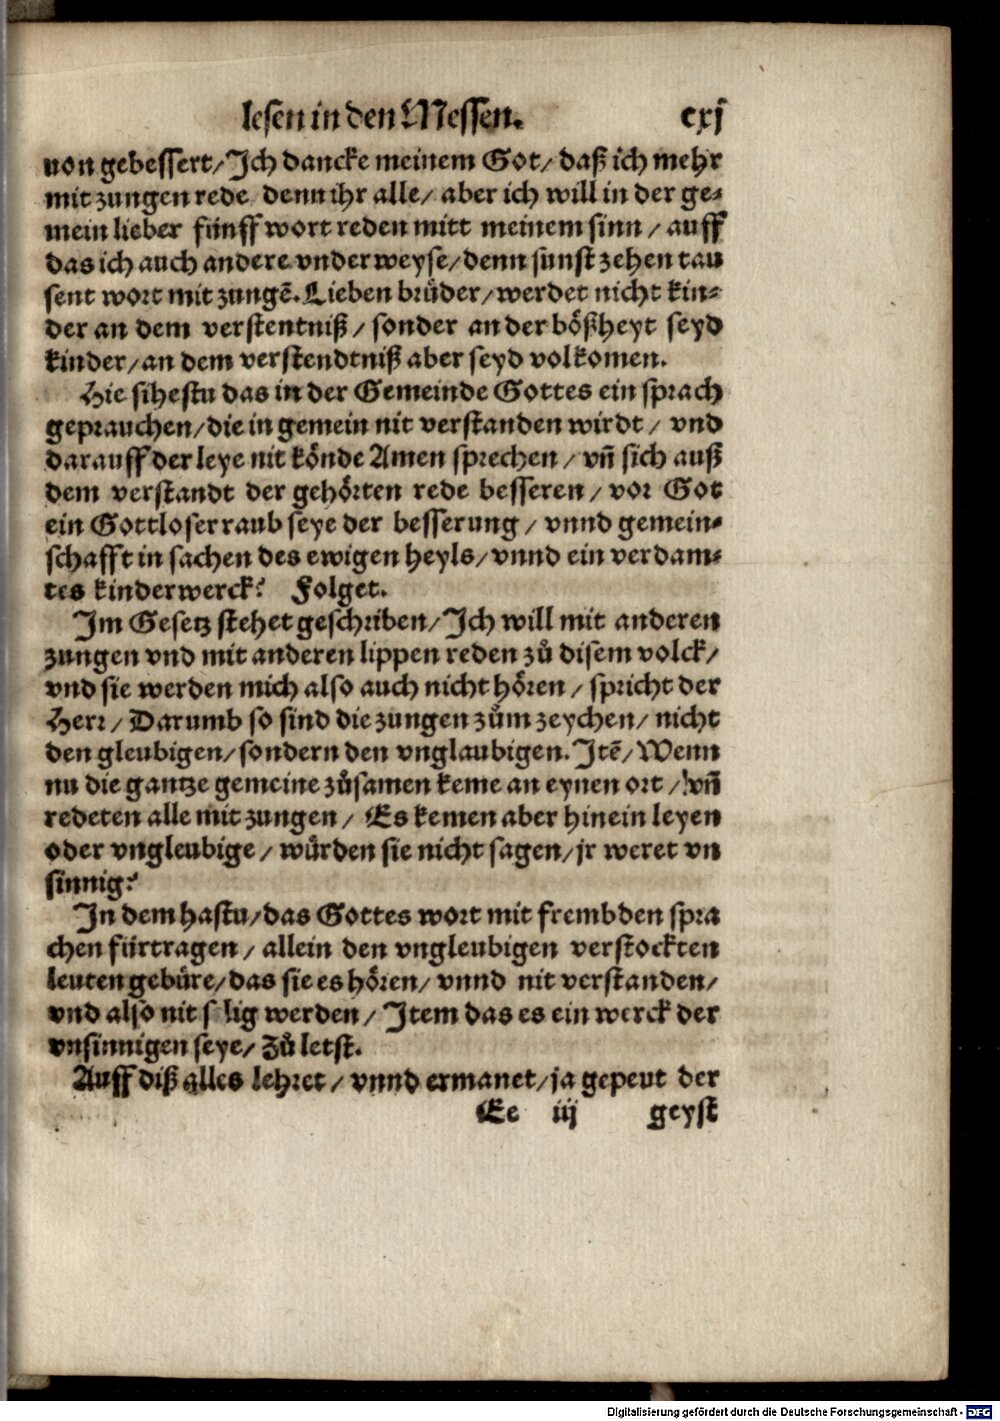 lesen in den Messen. cxj
von gebessert/Jch dancke meinem Got/ daß ich mehr
mit zungen rede denn ihr alle/ aber ich will in der ge⸗
mein lieber fünff wort reden mitt meinem sinn/ auff
das ich auch andere vnderweyse/denn sunst zehen tau
sent wort mit zungẽ. Lieben brüder/werdet nicht kin⸗
der an dem verstentniß/ sonder an der bößheyt seyd
kinder/an dem verstendtniß aber seyd volkomen.
Hie sihestu das in der Gemeinde Gottes ein sprach
geprauchen/die in gemein nit verstanden wirdt/ vnd
darauff der leye nit könde Amen sprechen/ vñ sich auß
dem verstandt der gehörten rede besseren/ vor Got
ein Gottloser raub seye der besserung/ vnnd gemein⸗
schafft in sachen des ewigen heyls/ vnnd ein verdam⸗
tes kinderwerck? Folget.
Jm Gesetz stehet geschriben/Jch will mit anderen
zungen vnd mit anderen lippen reden zů disem volck/
vnd sie werden mich also auch nicht hören/ spricht der
Herr/ Darumb so sind die zungen zům zeychen/ nicht
den gleubigen/sondern den vnglaubigen. Jtẽ/ Wenn
nu die gantze gemeine zůsamen keme an eynen ort/ vñ
redeten alle mit zungen/ Es kemen aber hinein leyen
oder vngleubige/ würden sie nicht sagen/jr weret vn
sinnig?
Jn dem hastu/das Gottes wort mit frembden spra
chen fürtragen/ allein den vngleubigen verstockten
leuten gebüre/das sie es hören/ vnnd nit verstanden/
vnd also nit s lig werden/ Jtem das es ein werck der
vnsinnigen seye/ Zů letst.
Auff diß alles lehret/ vnnd ermanet/ja gepeut der
Ee iij geyst
Digitalisierung gefördert durch die Deutsche Forschungsgemeinschaft - DFG